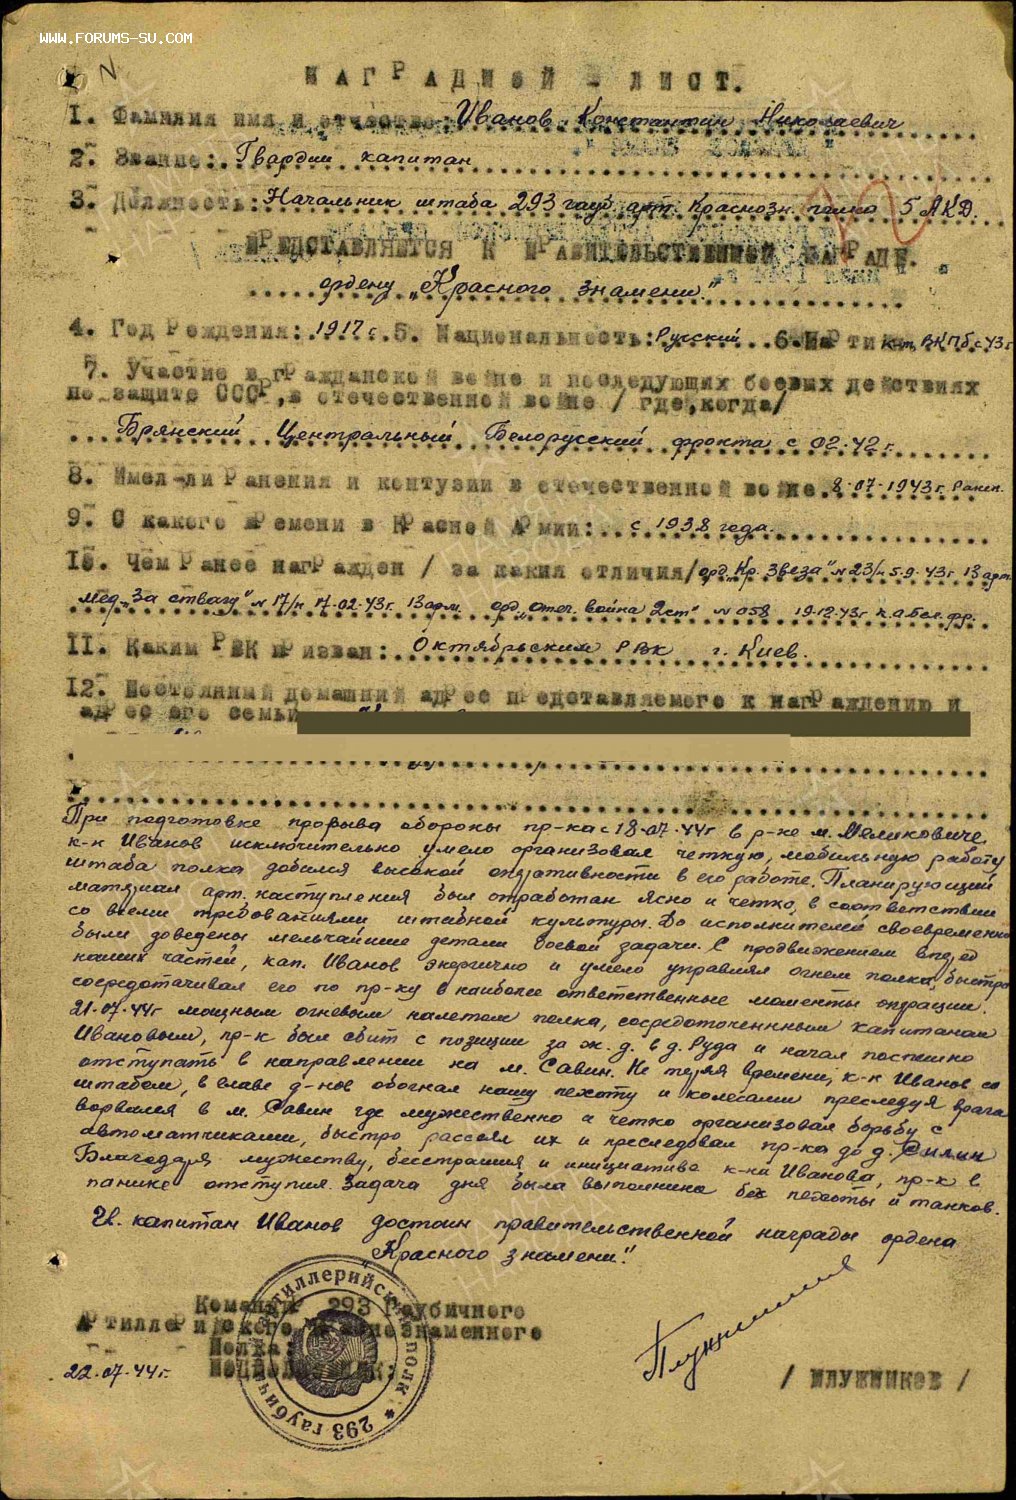 WWW.FORUMS-SU.COM
НАГРАДНОЙ - ЛИСТ.
1. Фамилия имя и отчество: Иванов Константин Николаевич
2. Звание: Гвардии капитан
3. Должность: Начальник штаба 293 гауб. арт. Краснозн. полка 5 АКД.
ПРЕДСТАВЛЯЕТСЯ К ПРАВИТЕЛЬСТВЕННОЙ НАГРАДЕ.
ордену „Красного знамени"
4. Год Рождения: 1917 г. 5. Национальность: Русский 6. Партийн. ВКПб с 43 г
7. Участие в гражданской войне и последующих боевых действиях
по защите СССР, в отечественной войне / где, когда/
Брянский Центральный Белорусский фронта с 02.42 г.
8. Имел-ли Ранения и контузии в отечественной войне. 8.07.1943 г. Ранен.
9. С какого времени в Красной Армии: с 1938 года.
10. Чем Ранее награжден / за какия отличия/ орд „Кр. Звеза" №23/ 5.9.43г 13 арт.
мед „За отвагу" №17/н 17.02.43г. 13 арм. орд „отеч. война 2 ст" №058 19.12.43г к.а бел. фр.
11. Каким РВК призван: Октябрьским РВК г. Киев.
12. Постоянный домашний адрес представляемого к награждению и
адрес его семьи
При подготовке прорыва обороны пр-ка с 18.07.44г в р-не м. Мелиховиче,
к-н Иванов исключительно умело организовал четкую, мобильную работу
штаба полка добился высокой оперативности в его работе. Планирующий
матэриал арт. наступления был отработан ясно и четко, в соответствии
со всеми требованиями штабной культуры. До исполнителей своевременно
были доведены мельчайшие детали боевой задачи. С продвижением вперед
наших частей, кап. Иванов энергично и умело управлял огнем полка, быстро
сосредотачивал его по пр-ку в наиболее ответственные моменты операции.
21.07.44г мощным огневым налетом полка, сосредоточеннным капитаном
Ивановым, пр-к был сбит с позиции за ж.д. в д. Руда и начал поспешно
отступать в направлении на м. Савин. Не теряя времени, к-н Иванов со
штабом, в главе д-нов обогнал нашу пехоту и колесами преследуя врага
ворвался в м. Савин где мужественно и четко организовал борьбу с
автоматчиками, быстро рассеял их и преследовал пр-ка до д. Силин
Благодаря мужеству, бесстрашия и инициативе к-на Иванова, пр-к в
панике отступил. Задача дня была выполнина без пехоты и танков.
Гв. капитан Иванов достоин правительственной награды ордена
„Красного знамени".
Командир 293 Гаубичного
Артиллерийского Краснознаменного
Полка:
Подполковник:
22.07.44г.
/ ПЛУЖНИКОВ /
артиллерийский полк * 293 гаубич